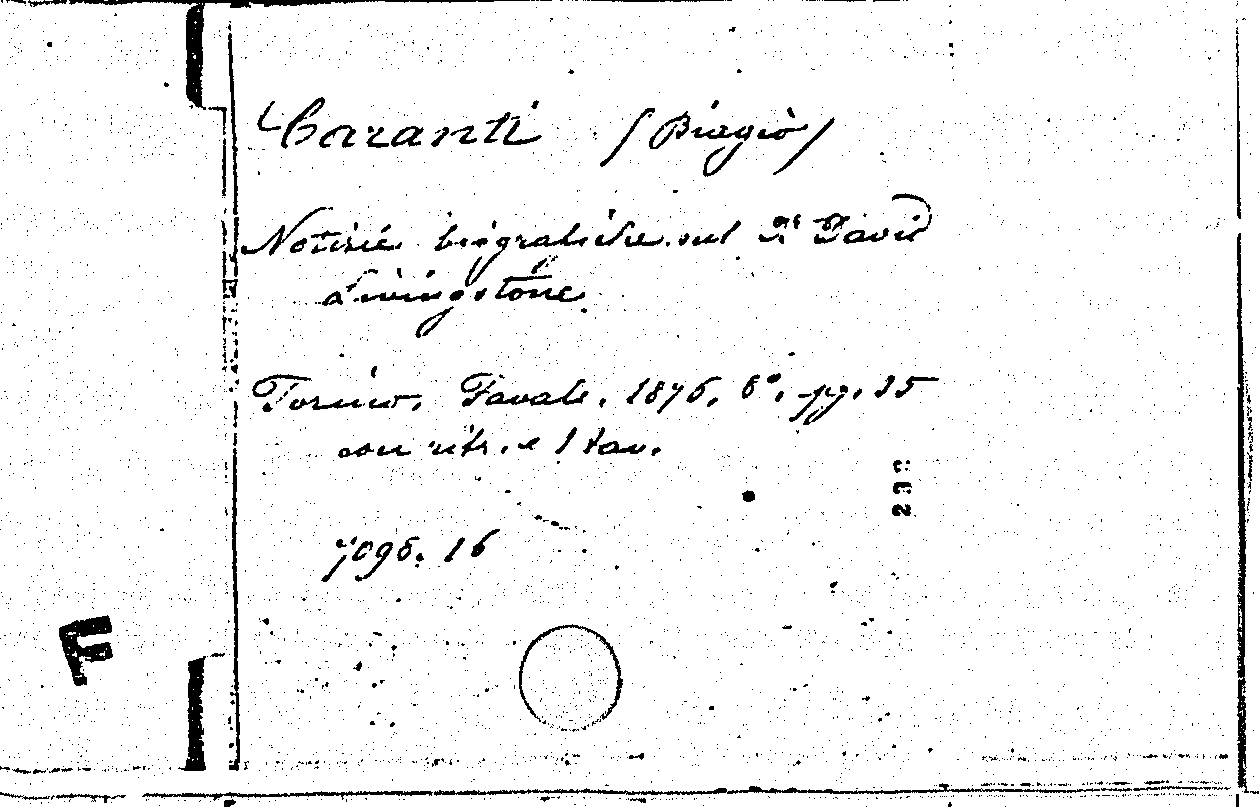 Caranti (Biagio)
Notizie biografiche sul Dr David
Livingstone.
Torino. Favale. 1876. 8°. pg. 35
con ritr. e 1 tav.
7096. 16
F